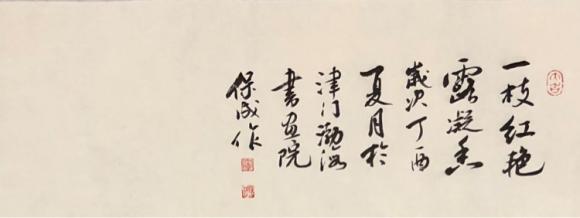 一枝红艳
露凝香
岁次丁酉
夏月於
津门渤海
书画院
保成作